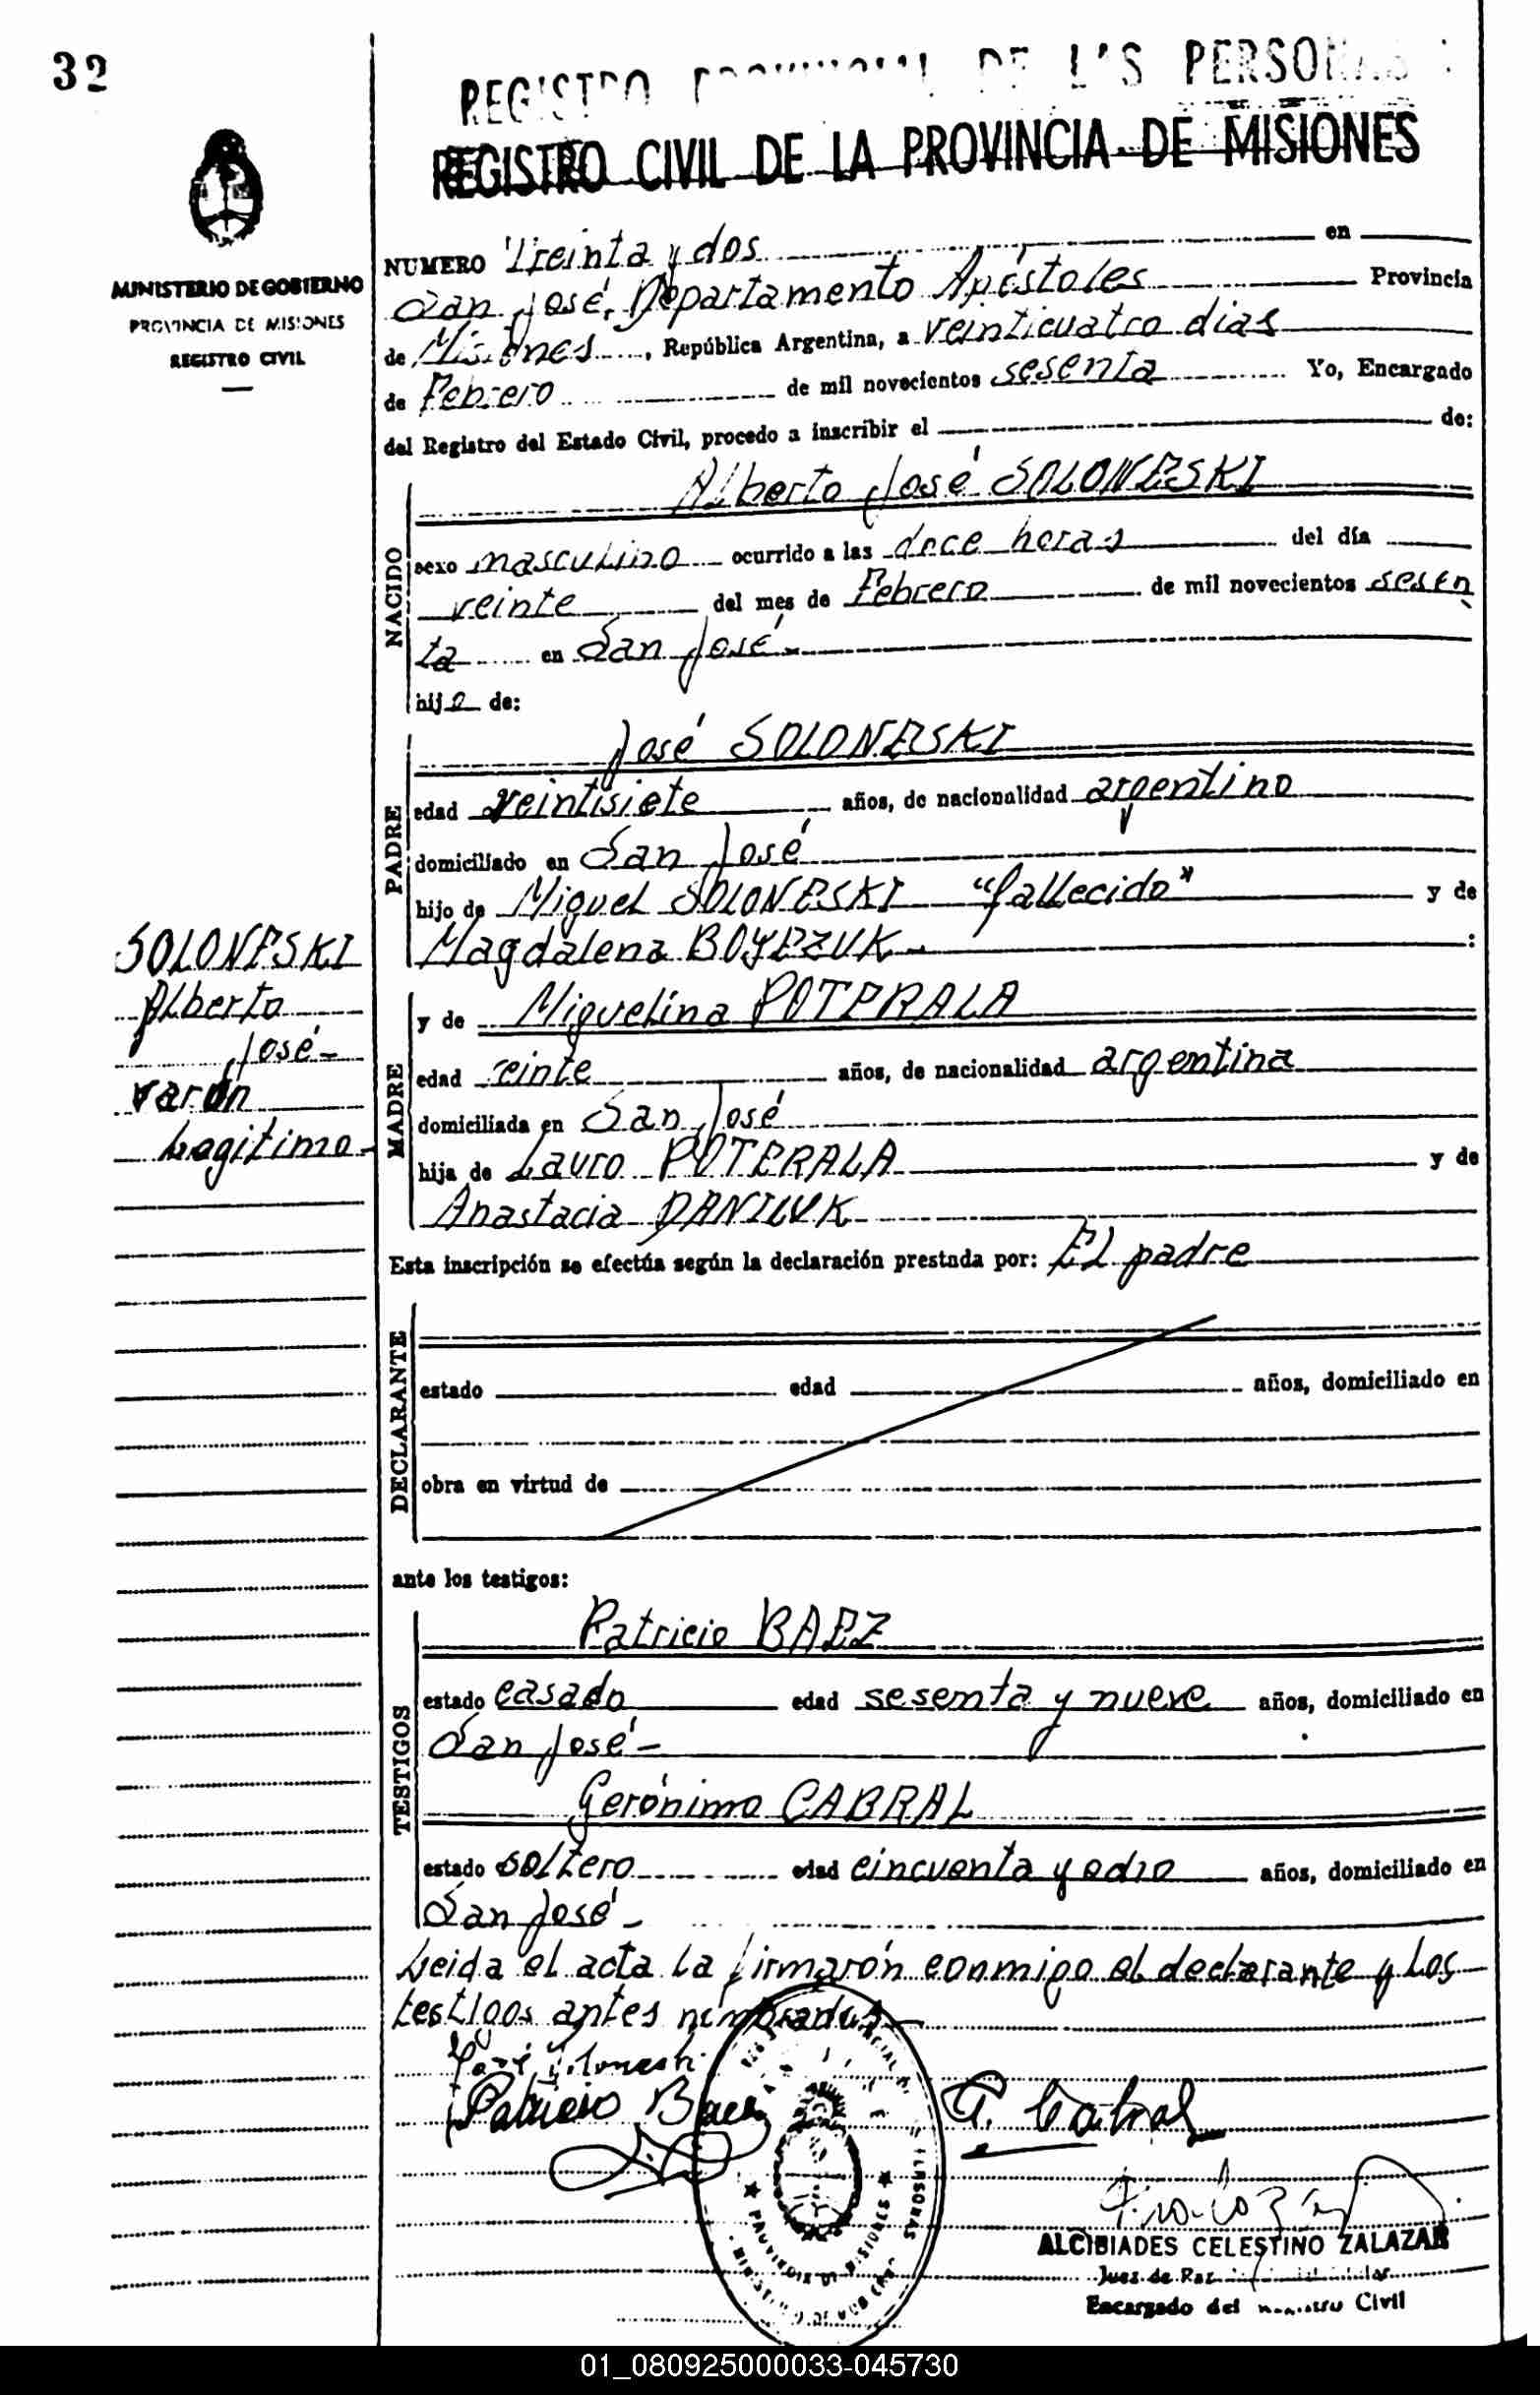 32
REGISTRO PROVINCIAL DE LAS PERSONAS
REGISTRO CIVIL DE LA PROVINCIA DE MISIONES
MINISTERIO DE GOBIERNO
PROVINCIA DE MISIONES
REGISTRO CIVIL
NUMERO Treinta y dos en
San José, Departamento Apóstoles Provincia
de Misiones, República Argentina, a veinticuatro dias
de Febrero de mil novecientos sesenta Yo, Encargado
del Registro del Estado Civil, procedo a inscribir el de:
NACIDO
Alberto José SOLONESKI
sexo masculino ocurrido a las doce horas del día
veinte del mes de Febrero de mil novecientos sesen
ta en San José.-
hijo de:
PADRE
José SOLONESKI
edad veintisiete años, de nacionalidad argentino
domiciliado en San José
hijo de Miguel SOLONESKI "fallecido" y de
Magdalena BOYEZUK.- :
SOLONESKI
Alberto
José-
varón
Legitimo-
MADRE
y de Miguelina POTERALA
edad veinte años, de nacionalidad argentina
domiciliada en San José
hija de Lauro POTERALA y de
Anastacia DANILUK
Esta inscripción se efectúa según la declaración prestada por: El padre
DECLARANTE
estado edad años, domiciliado en
obra en virtud de
ante los testigos:
TESTIGOS
Patricio BAEZ
estado casado edad sesenta y nueve años, domiciliado en
San José-
Gerónimo CABRAL
estado soltero edad cincuenta y ocho años, domiciliado en
San José-
Leida el acta la firmarón conmigo el declarante y los
testigos antes nombrados-
José Soloneski
Patricio Baez
G. Cabral
PROVINCIA DE MISIONES
ALCIBIADES CELESTINO ZALAZAR
Juez de Paz
Encargado del Registro Civil
01_080925000033-045730